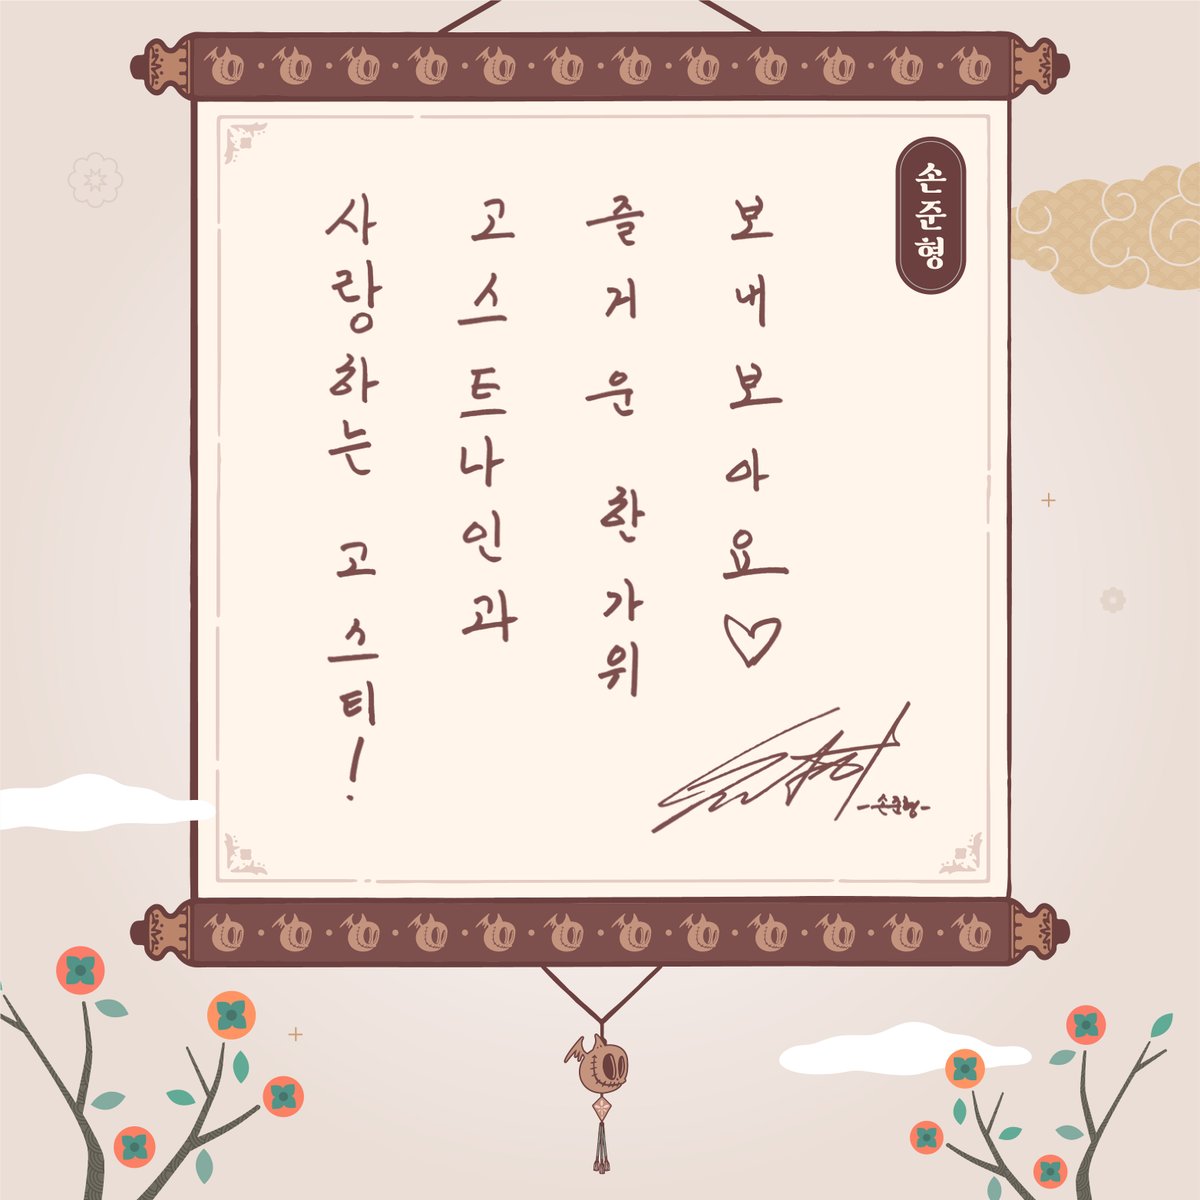 손준형
사랑하는 고스티!
고스트나인과
즐거운 한가위
보내보아요♡
-손준형-